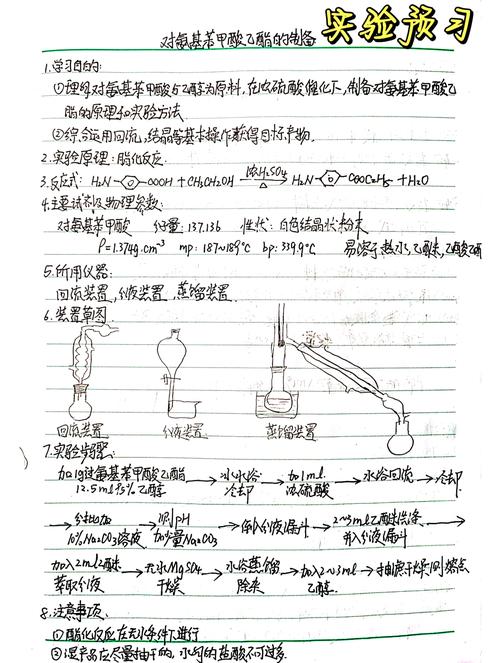 实验预习
对氨基苯甲酸乙酯的制备
1.学习目的:
①理解对氨基苯甲酸与乙醇为原料,在浓硫酸催化下,制备对氨基苯甲酸乙
酯的原理和实验方法
②综合运用回流、结晶等基本操作获得目标产物.
2.实验原理:酯化反应.
3.反应式: H₂N- -COOH + CH3CH2OH 浓H₂SO₄ △ H₂N- -COOC₂H₅ + H₂O
4.主要试剂及物理参数:
对氨基苯甲酸 分子量:137.136 性状:白色结晶状粉末
ρ=1.374g.cm⁻³ mp:187~189℃ bp:339.9℃ 易溶于热水,乙醚,乙酸乙酯
5.所用仪器:
回流装置,分液装置,蒸馏装置.
6.装置草图
回流装置 分液装置 蒸馏装置
7.实验步骤:
加1g对氨基苯甲酸乙酯 → 冰水浴 → 加1ml → 水浴回流 → 冷却
12.5ml95%乙醇 冷却 浓硫酸
→ 分批加 → 测pH → 倒入分液漏斗 → 2~3ml乙醚洗涤
10%Na₂CO₃溶液 加少量Na₂CO₃ 并入分液漏斗
加入2ml乙醚 → 无水MgSO₄ → 水浴蒸馏 → 加入2~3ml → 抽滤干燥测熔点
萃取分液 干燥 除 乙醇.
8.注意事项.
①酯化反应在无水条件下进行
②湿产品应尽量抽干的,水钙的盐酸不可过多.